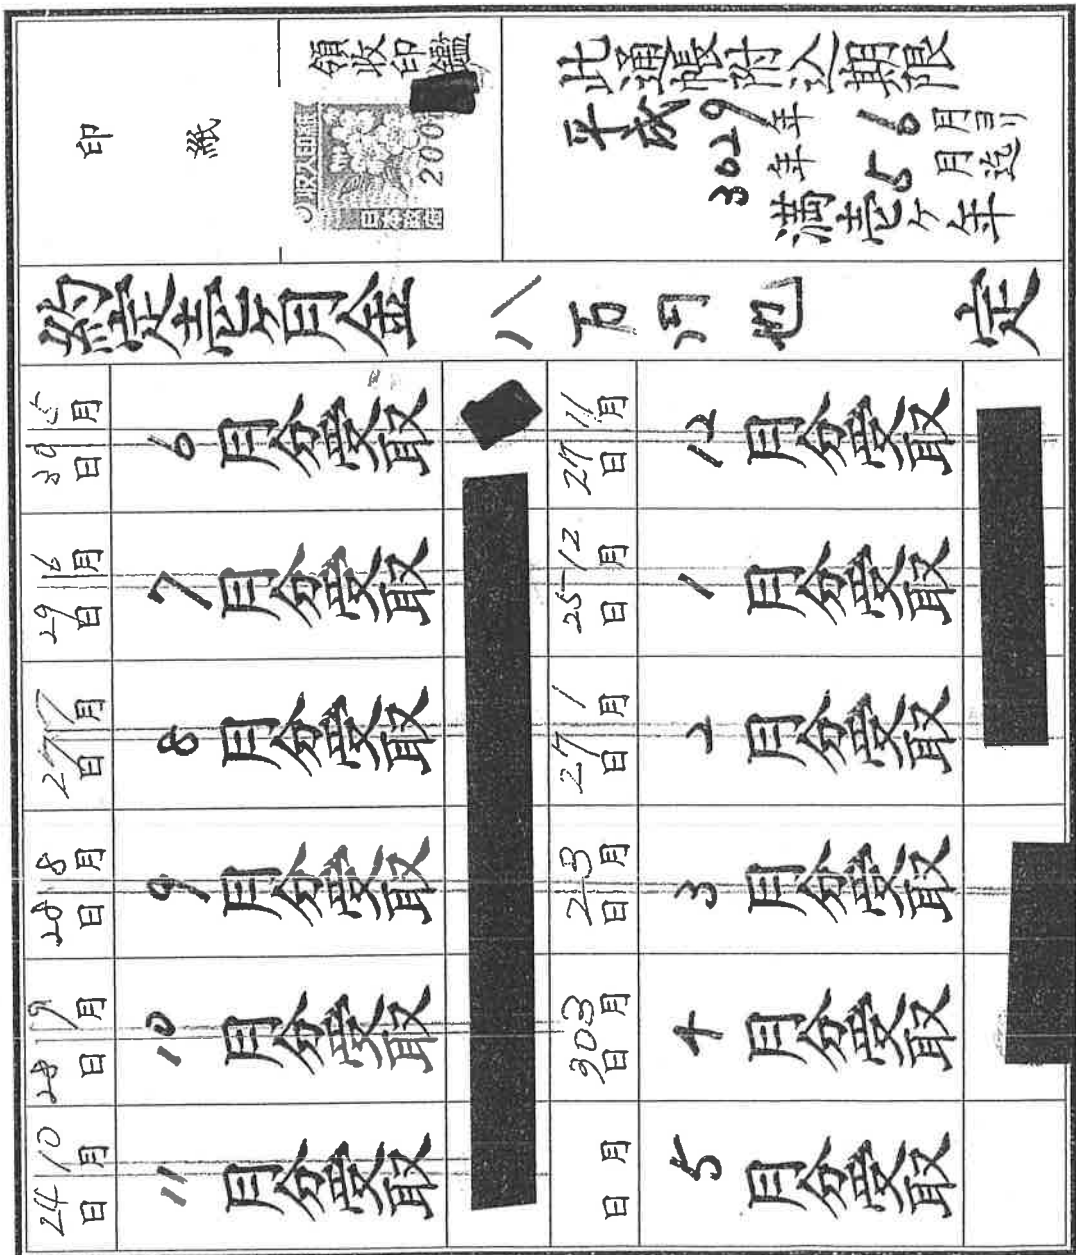 此通帳附込期限
平成29年6月ヨリ
30年5月迄
満壱ヶ年
領收印鑑
収入印紙
200
日本政府
印紙
約定壱ヶ月金 八万円也 定
5月29日 6月分受取
6月29日 7月分受取
7月27日 8月分受取
8月28日 9月分受取
9月28日 10月分受取
10月24日 11月分受取
11月27日 12月分受取
12月25日 1月分受取
1月27日 2月分受取
3月2日 3月分受取
3月30日 4月分受取
月 日 5月分受取